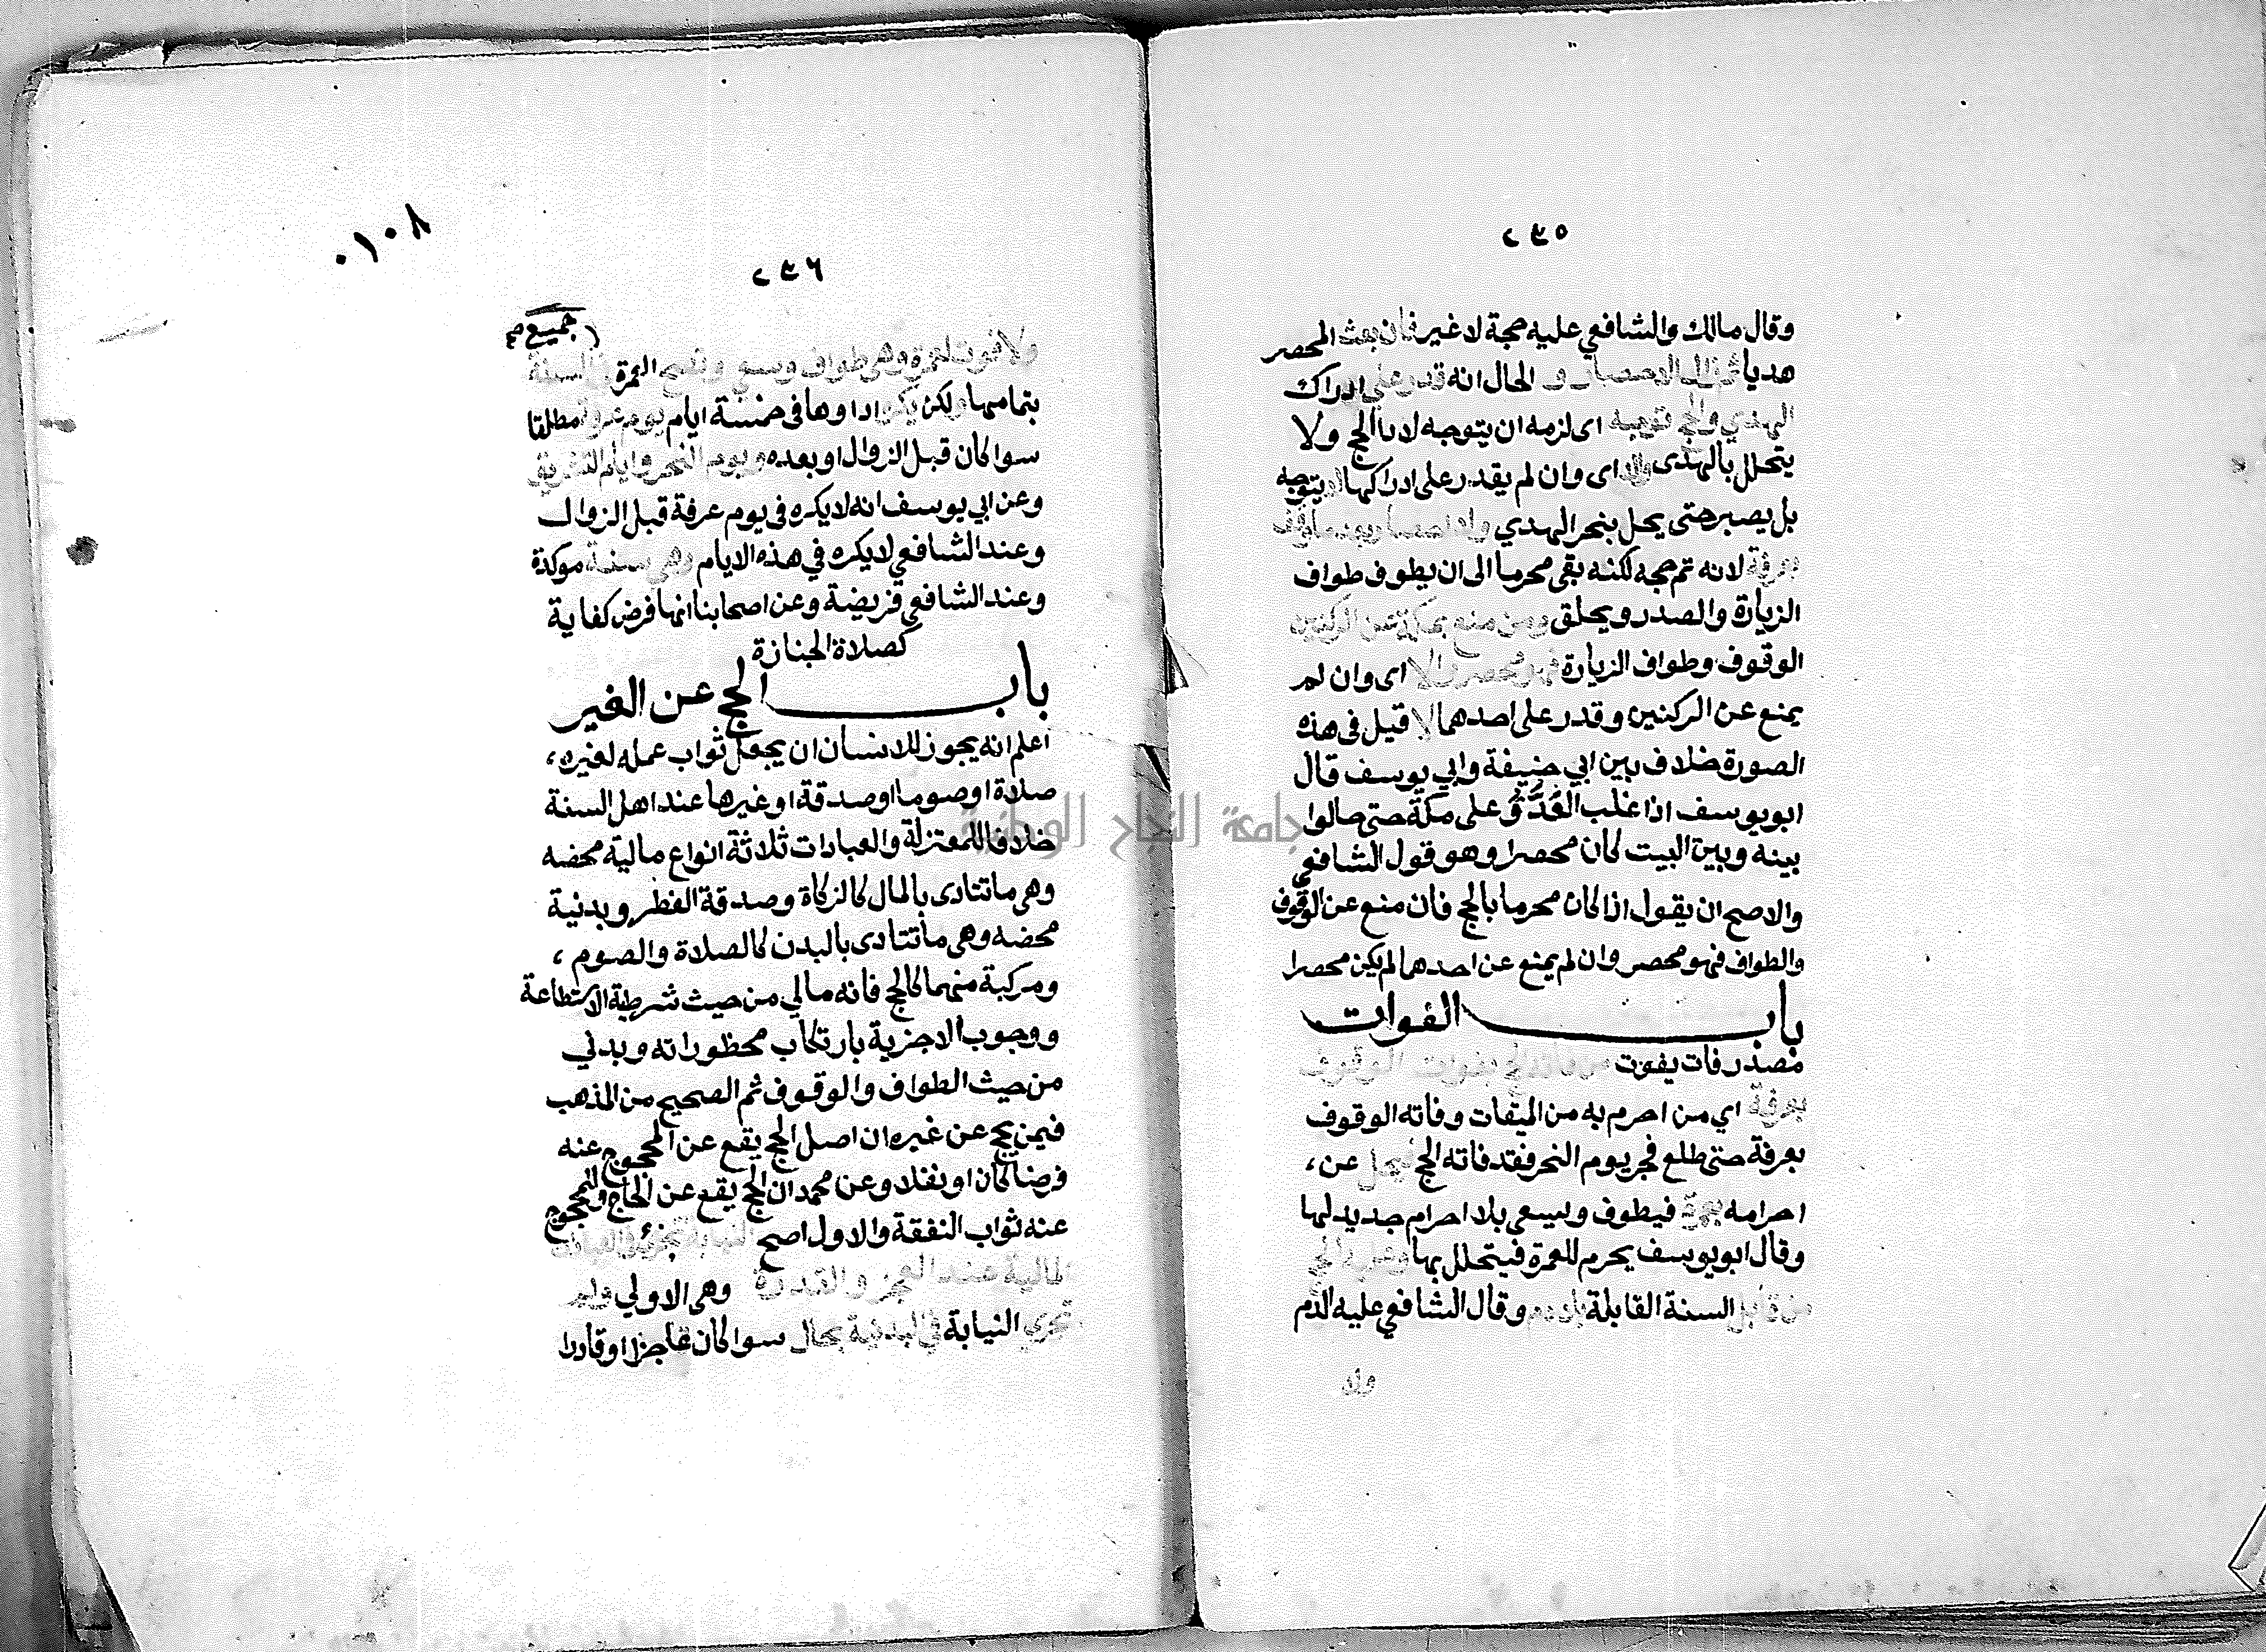 ٢٣٥
وقال مالك والشافعي عليه حجة لا غير فان بعث المحصر
هديا ثم زال الاحصار و الحال انه قدر على ادراك
الهدي والحج توجه اى لزمه ان يتوجه لادا الحج ولا
يتحلل بالهدى والا اى وان لم يقدر على ادراكهما لا يتوجه
بل يصبر حتى يحل بنحر الهدي ولا احصار بعد ما وقف
بعرفة لانه تم حجه لكنه بقى محرما الى ان يطوف طواف
الزيارة والصدر ويحلق ومن منع بمكة عن الركنين
الوقوف وطواف الزيارة فهو محصر والا اى وان لم
يمنع عن الركنين وقدر على احدهما لا قيل فى هذه
الصورة خلاف بين ابي حنيفة وابي يوسف قال
ابو يوسف اذا غلب العدو على مكة حتى حالوا
بينه وبين البيت كان محصرا وهو قول الشافعي
والاصح ان يقول اذا كان محرما بالحج فان منع عن الوقوف
والطواف فهو محصر وان لم يمنع عن احدهما لم يكن محصرا
باب الفوات
مصدر فات يفوت من فاته الحج بفوات الوقوف
بعرفة اي من احرم به من الميقات وفاته الوقوف
بعرفة حتى طلع فجر يوم النحر فقد فاته الحج فيحل عن،
احرامه بعمرة فيطوف ويسعى بلا احرام جديد لها
وقال ابو يوسف يحرم للعمرة فيتحلل بها وعليه الحج
من قابل السنة القابلة بلا دم وقال الشافعي عليه الدم
ولا
٠١٠٨
٢٣٦
جميع صح
ولا فوت لعمرة وهى طواف وسعي وتصح العمرة فى السنة
بتمامها ولكن يكره اداوها فى خمسة ايام يوم عرفة مطلقا
سوا كان قبل الزوال او بعده ويوم النحر وايام التشريق
وعن ابي يوسف انه لا يكره فى يوم عرفة قبل الزوال
وعند الشافعي لا يكره في هذه الايام وهى سنة موكدة
وعند الشافعي فريضة وعن اصحابنا انها فرض كفاية
كصلاة الجنازة
باب الحج عن الغير
اعلم انه يجوز للانسان ان يجعل ثواب عمله لغيره،
صلاة او صوما او صدقة او غيرها عند اهل السنة
خلافا للمعتزلة والعبادات ثلاثة انواع مالية محضه
وهى ما تتادى بالمال كالزكاة وصدقة الفطر وبدنية
محضه وهى ما تتادى بالبدن كالصلاة والصوم،
ومركبة منهما كالحج فانه مالي من حيث شرطية الاستطاعة
ووجوب الاجزية بارتكاب محظوراته وبدني
من حيث الطواف والوقوف ثم الصحيح من المذهب
فيمن يحج عن غيره ان اصل الحج يقع عن المحجوج عنه
فرضا كان او نفلا وعن محمد ان الحج يقع عن الحاج وللمحجوج
عنه ثواب النفقة والاول اصح النيابة تجزئ فى العبادات
المالية عند العجز والقدرة وهى الاولي ولم
تجزي النيابة فى البدنية بحال سوا كان عاجزا او قادرا
جامعة النجاح الوطنية